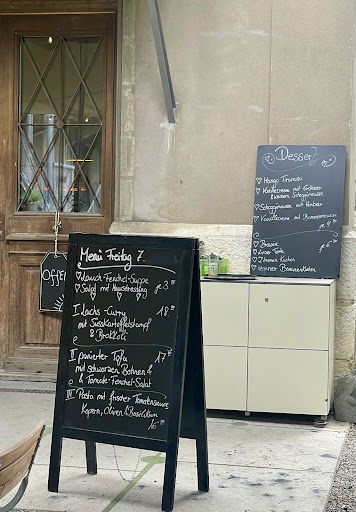 Menü Freitag 7.
Lauch-Fenchel-Suppe
Salat mit Hausdressing
je 3.50
I Lachs-Curry 18.50
mit Süsskartoffelstampf
& Brokkoli
II panierter Tofu 17.50
mit schwarzen Bohnen &
& Tomate-Fenchel-Salat
III Pasta mit frischer Tomatensauce,
Kapern, Oliven & Basilikum
16.50
OFFEN
Dessert
Mango Tiramisu
Vanillecreme mit Erdbeer
Schoggimousse
Schoggimousse mit Himbeer
Vanillecreme mit
Brownie
Linzer Torte
Zitronen Kuchen
veganer Bananenkuchen